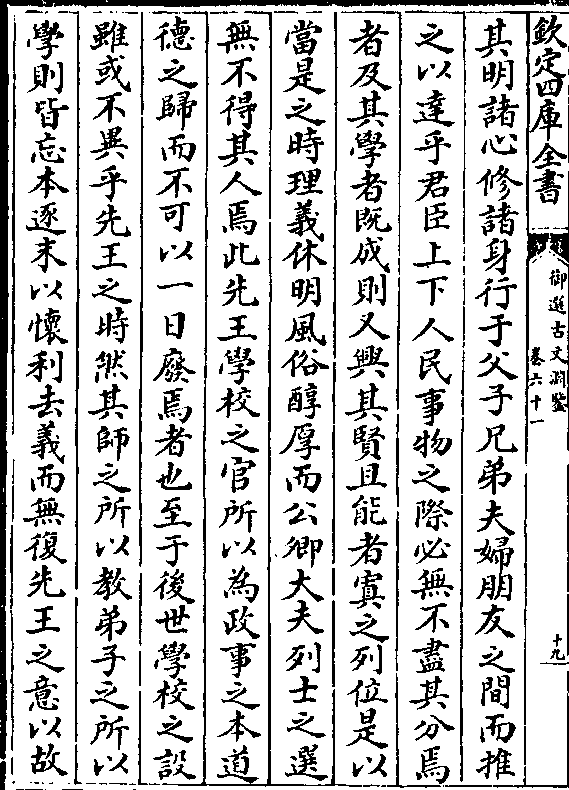 欽定四庫全書
御選古文淵鑒
卷六十一
十九
其明諸心修諸身行于父子兄弟夫婦朋友之間而推
之以達乎君臣上下人民事物之際必無不盡其分焉
者及其學者既成則又興其賢且能者寘之列位是以
當是之時理義休明風俗醇厚而公卿大夫列士之選
無不得其人焉此先王學校之官所以為政事之本道
德之歸而不可以一日廢焉者也至于後世學校之設
雖或不異乎先王之時然其師之所以教弟子之所以
學則皆忘本逐末以懷利去義而無復先王之意以故